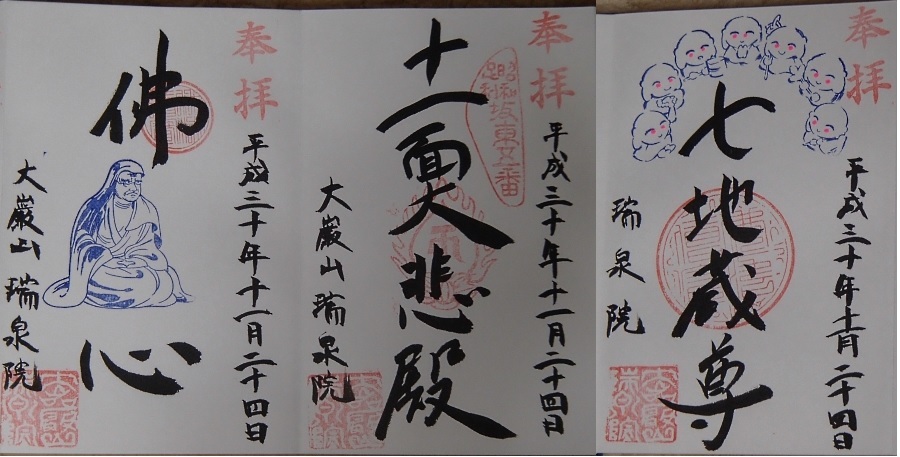 奉拝
平成三十年十一月二十四日
佛心
大巌山 瑞泉院
奉拝
昭和坂東廿一番
足利
平成三十年十一月二十四日
十一面大悲殿
大巌山 瑞泉院
奉拝
平成三十年十一月二十四日
七地蔵尊
瑞泉院